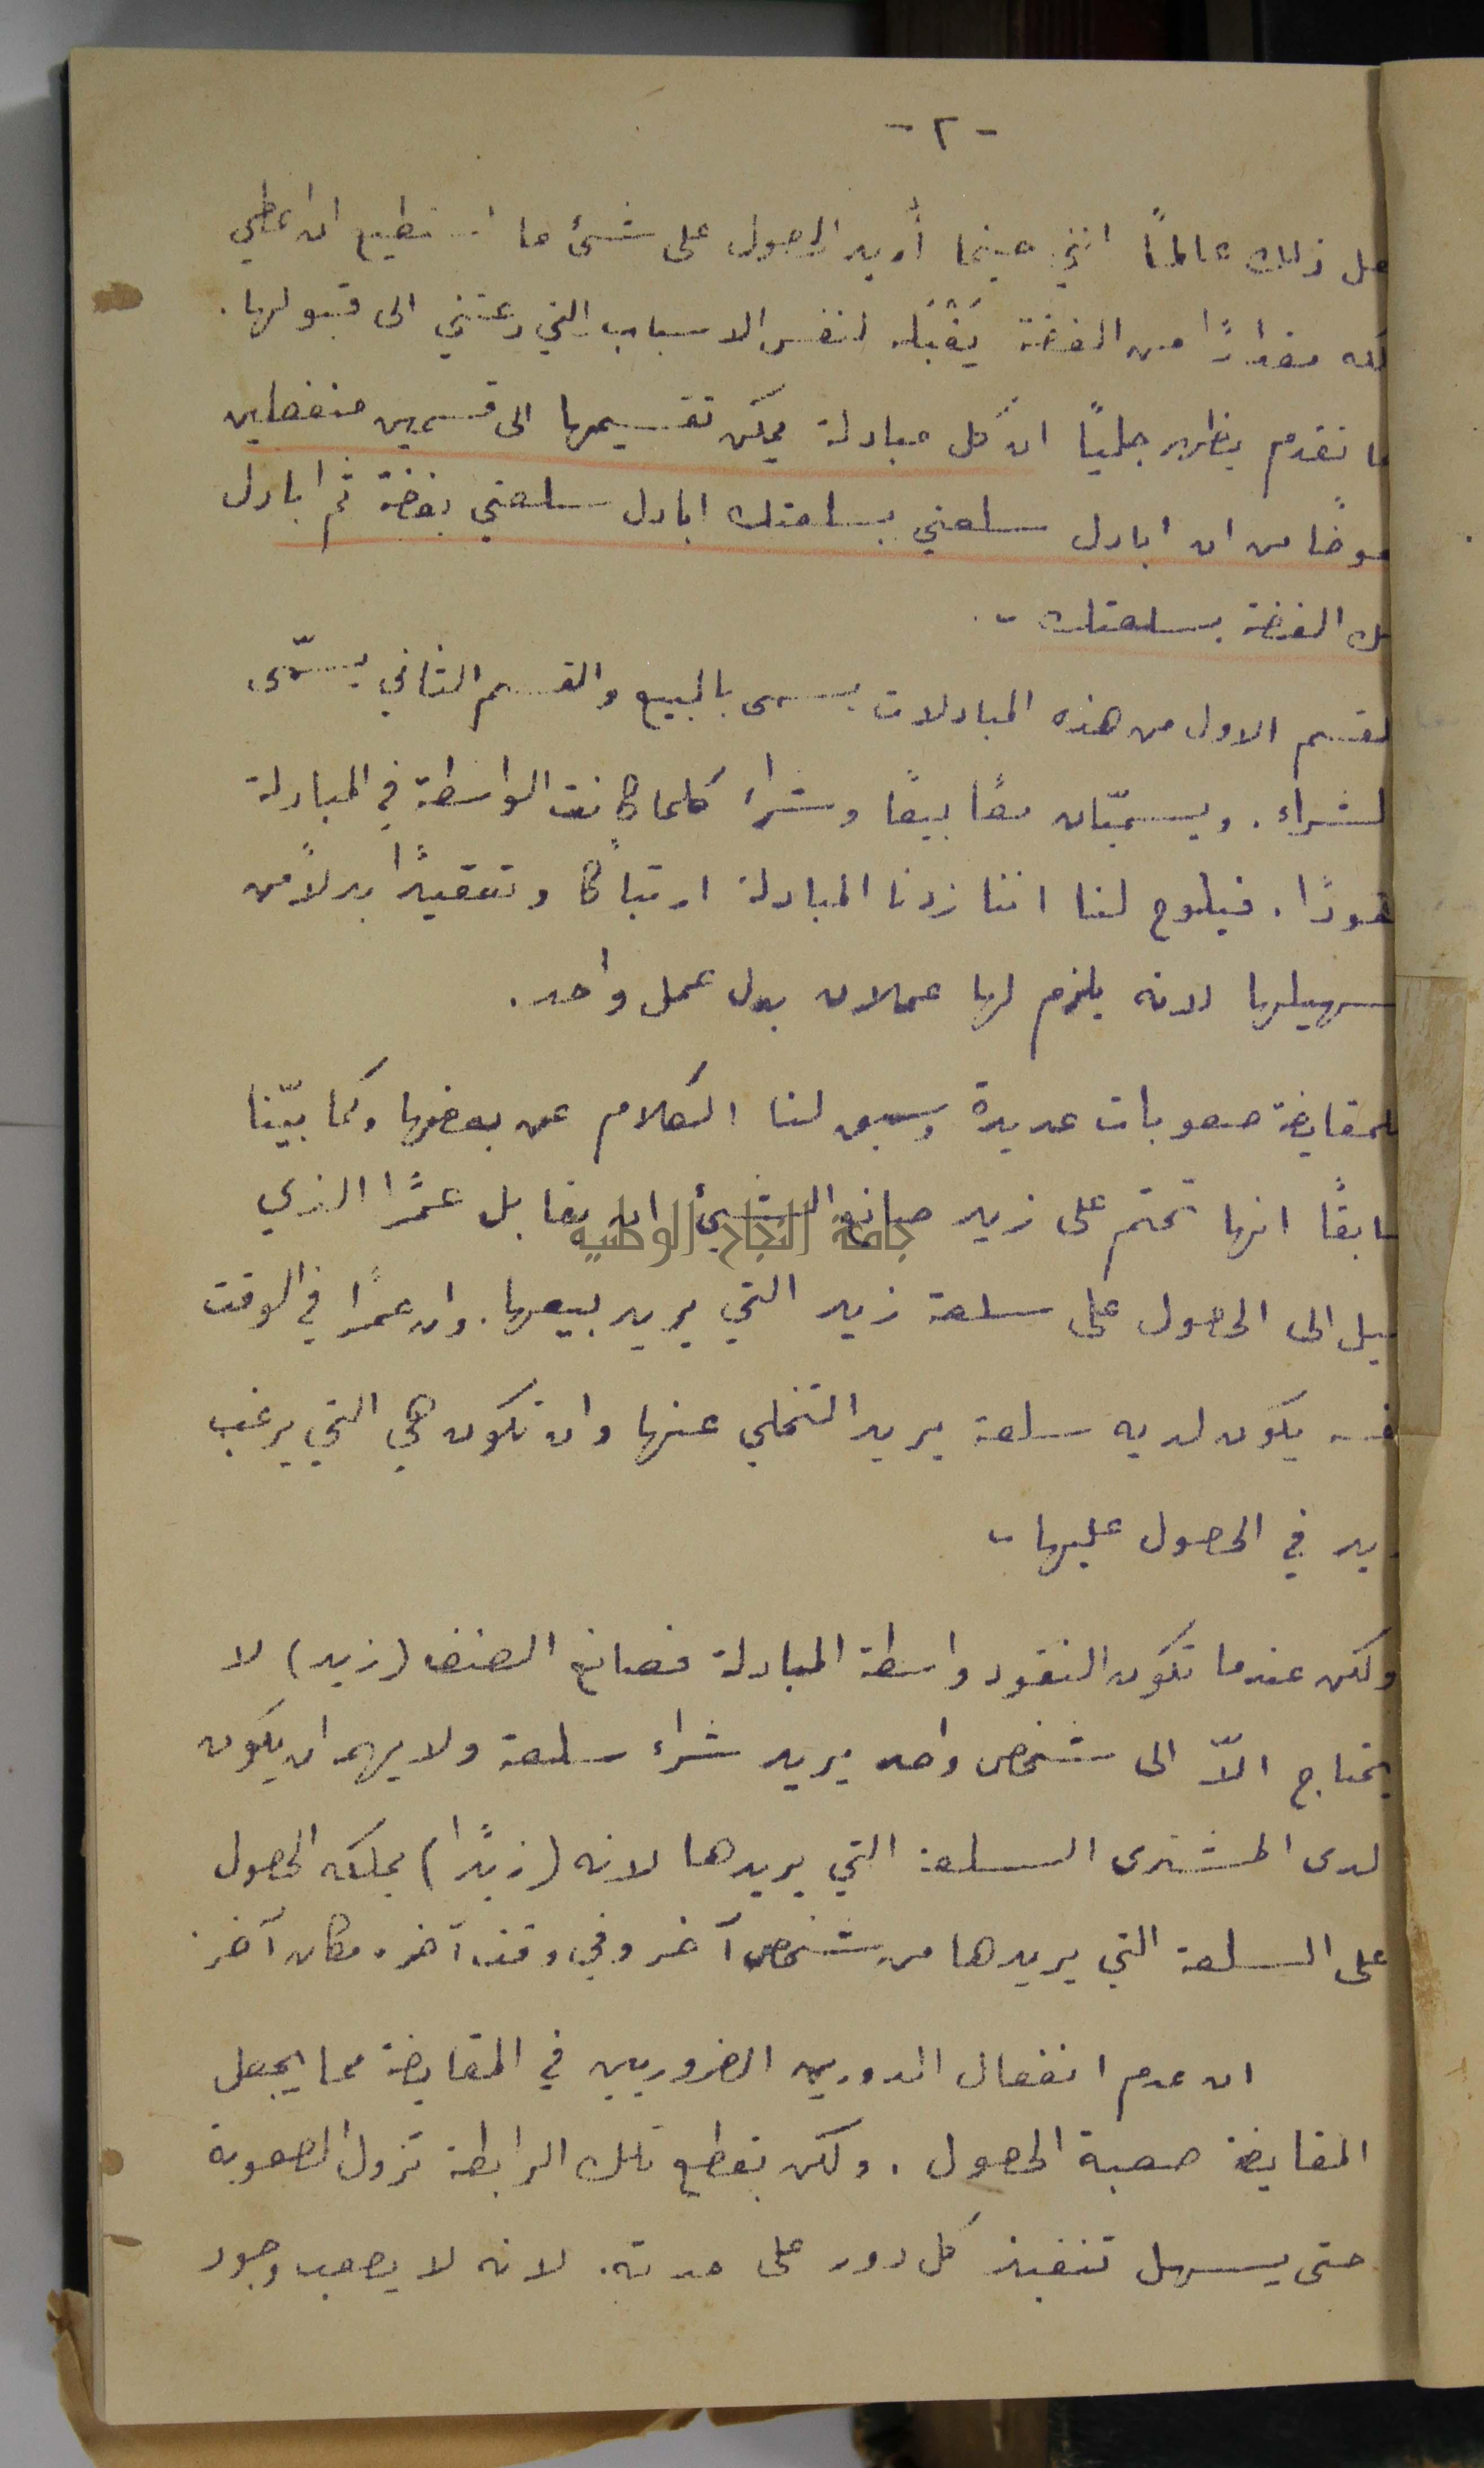 - ٢ -
ذلك عالماً انني حينما أريد الحصول على شئ ما استطيع ان اعطي
مقداراً من الفضة يَقْبَله لنفس الاسباب التي دعتني الى قبولها.
ما تقدم يظهر جلياً ان كل مبادلة يمكن تقسيمها الى قسمين منفصلين
عوضاً من ان ابادل سلعتي بسلعتك ابادل سلعتي بفضة ثم ابادل
لك الفضة بسلعتك .
لقسم الاول من هذه المبادلات يسمى بالمبيع والقسم الثاني يسمّى
لشراء. ويسمّيان معاً بيعاً وشراءً كلما كانت الواسطة في المبادلة
قوداً. فيلوح لنا اننا زدنا المبادلة ارتباكاً وتعقيداً بدلاً من
سهيلها لانه يلزم لها عملان بدل عمل واحد.
للمقايضة صعوبات عديدة وسبق لنا الكلام عن بعضها وكما بيّنا
سابقاً انها تحتم على زيد صانع الشئ ان يقابل عمرًا الذي
يل الى الحصول على سلعة زيد التي يريد بيعها. وان عمرًا في الوقت
فسه يكون لديه سلعة يريد التخلي عنها وان تكون هي التي يرغب
زيد في الحصول عليها .
ولكن عندما تكون النقود واسطة المبادلة فصانع الصنف (زيد) لا
يحتاج الاّ الى شخص واحد يريد شراء سلعة ولا يهمه ان يكون
لدى المشترى السلعة التي يريدها لانه (زيدًا) يمكنه الحصول
على السلعة التي يريدها من شخص آخر وفي وقت آخر ومكان آخر.
ان عدم انفصال الدورين الضروريين في المقايضة مما يجعل
المقايضة صعبة الحصول. ولكن بقطع تلك الرابطة تزول الصعوبة
حتى يسهل تنفيذ كل دور على حدته. لانه لا يصعب وجود
جامعة النجاح الوطنية